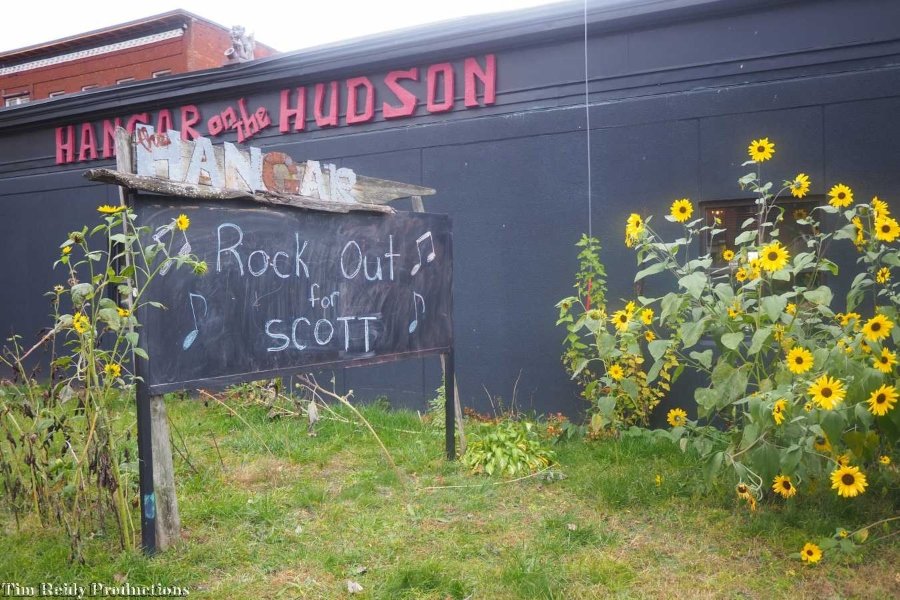 HANGAR on the HUDSON
the HANGAR
Rock Out
for
SCOTT
Tim Reidy Productions